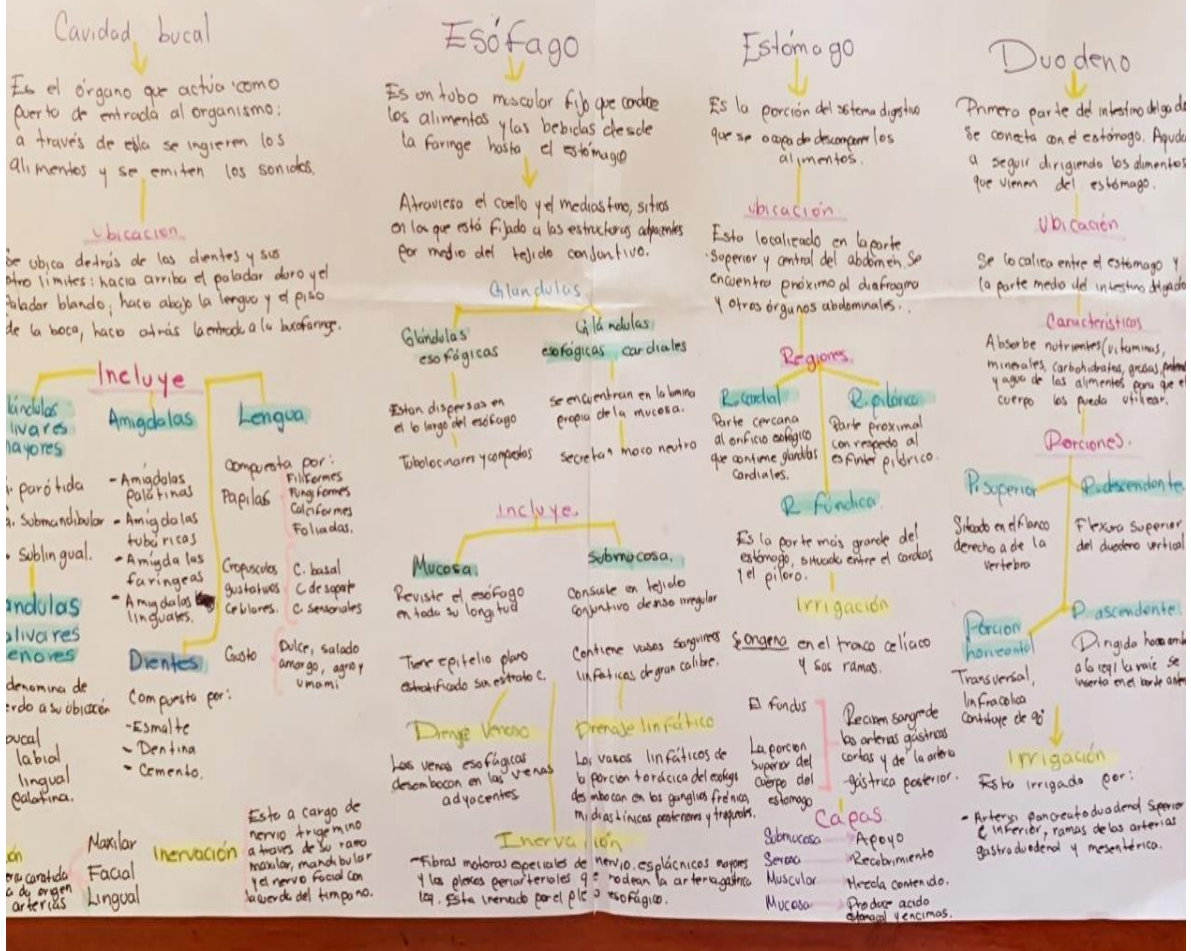 Cavidad bucal
Es el órgano que actúa como
puerto de entrada al organismo:
a través de ella se ingieren los
alimentos y se emiten los sonidos.
Ubicación
Se ubica detrás de los dientes y sus
otro límites: hacia arriba el paladar duro y el
paladar blando, hacia abajo la lengua y el piso
de la boca, hacia atrás la entrada a la bucofaringe.
Incluye
livares
mayores
parótida
Submandibular
Sublingual.
olivares
denomina de
erdo a su ubicación
bucal
labial
lingual
palatina.
Amigdalas
- Amigdalas
palatinas
- Amigdalas
tubáricas
- Amigdalas
faríngeas
- Amigdalas
linguales.
Dientes
Compuesta por:
- Esmalte
- Dentina
- Cemento.
Lengua
Compuesta por:
Papilas
Filiformes
Fungiformes
Calciformes
Foliadas.
gustativos
C. basal
C de soporte
C. sensoriales
Gusto
Dulce, salado
amargo, agrio y
umami
de origen
arterias
Maxilar
Facial
Lingual
Inervación
Esta a cargo de
nervio trigemino
a través de su ramo
maxilar, mandibular
y el nervio facial con
la cuerda del timpano.
Esófago
Es un tubo muscular fijo que conduce
los alimentos y las bebidas desde
la faringe hasta el estómago
Atraviesa el cuello y el mediastino, sitios
en los que está fijado a las estructuras adyacentes
por medio del tejido conjuntivo.
Glándulas
Glándulas
esofágicas
Estan dispersas en
el lo largo del esófago
Glándulas
esofágicas cardiales
se encuentran en la lamina
propia de la mucosa.
secretan moco neutro
Incluye.
Mucosa.
Reviste el esófago
en toda su longitud
Tiene epitelio plano
estratificado sin estrato c.
Submucosa.
Consiste en tejido
conjuntivo denso irregular
Contiene vasos sanguineos
linfáticos de gran calibre.
Drenaje Venoso
Las venas esofágicas
desembocan en las venas
adyacentes
Drenaje linfático
Los vasos linfáticos de
la porcion torácica del esofago
desembocan en los ganglios frénicos,
mediastínicos posteriores y traqueales.
Inervación
- Fibras motoras especiales de nervio. esplácnicos mayores
y los plexos periarteriales que rodean la arteria gástrica
izq. Esta inervado por el plexo esofágico.
Estómago
Es la porción del sistema digestivo
que se ocupa de descomponer los
alimentos.
Ubicación
Esta localizado en la parte
superior y central del abdomen. Se
encuentra próximo al diafragma
y otros órganos abdominales.
Regiones.
R. cardial
Parte cercana
al orificio esofágico
que contiene glandulas
cardiales.
R. pilórica
Parte proximal
con respedo al
esfinter pilórico.
R fúndica
Es la parte más grande del
estómago, situado entre el cardias
y el píloro.
Irrigación
Se origena en el tronco celíaco
y sus ramas.
El fundus
La porcion
superior del
cuerpo del
estomago
Reciben sangre de
las arterias gástricas
cortas y de la arteria
gástrica posterior.
Capas
Submucosa Apoyo
Serosa Recobrimiento
Muscular Mezcla contenido.
Mucosa Produce acido
estomacal y encimas.
Duodeno
Primera parte del intestino delgado
Se conecta con el estómago. Ayuda
a seguir dirigiendo los alimentos
que vienen del estómago.
Ubicación
Se localica entre el estómago y
la parte medio del intestino delgado
Características
Absorbe nutrientes (vitaminas,
minerales, carbohidratos, grasas,
y agua de los alimentos para que el
cuerpo los pueda utilizar.
Porciones.
P. superior
Situado en el flanco
derecho a de la
vertebra
P. descendente
Flexura superior
del duodeno vertical
Porcion
horizontal
Transversal,
infracolica
P. ascendente.
Dirigido
inserta en el borde
Irrigación
Esta irrigado por:
- Arterya pancreatoduodenal superior
e inferior, ramas de las arterias
gastroduodenal y mesentérica.